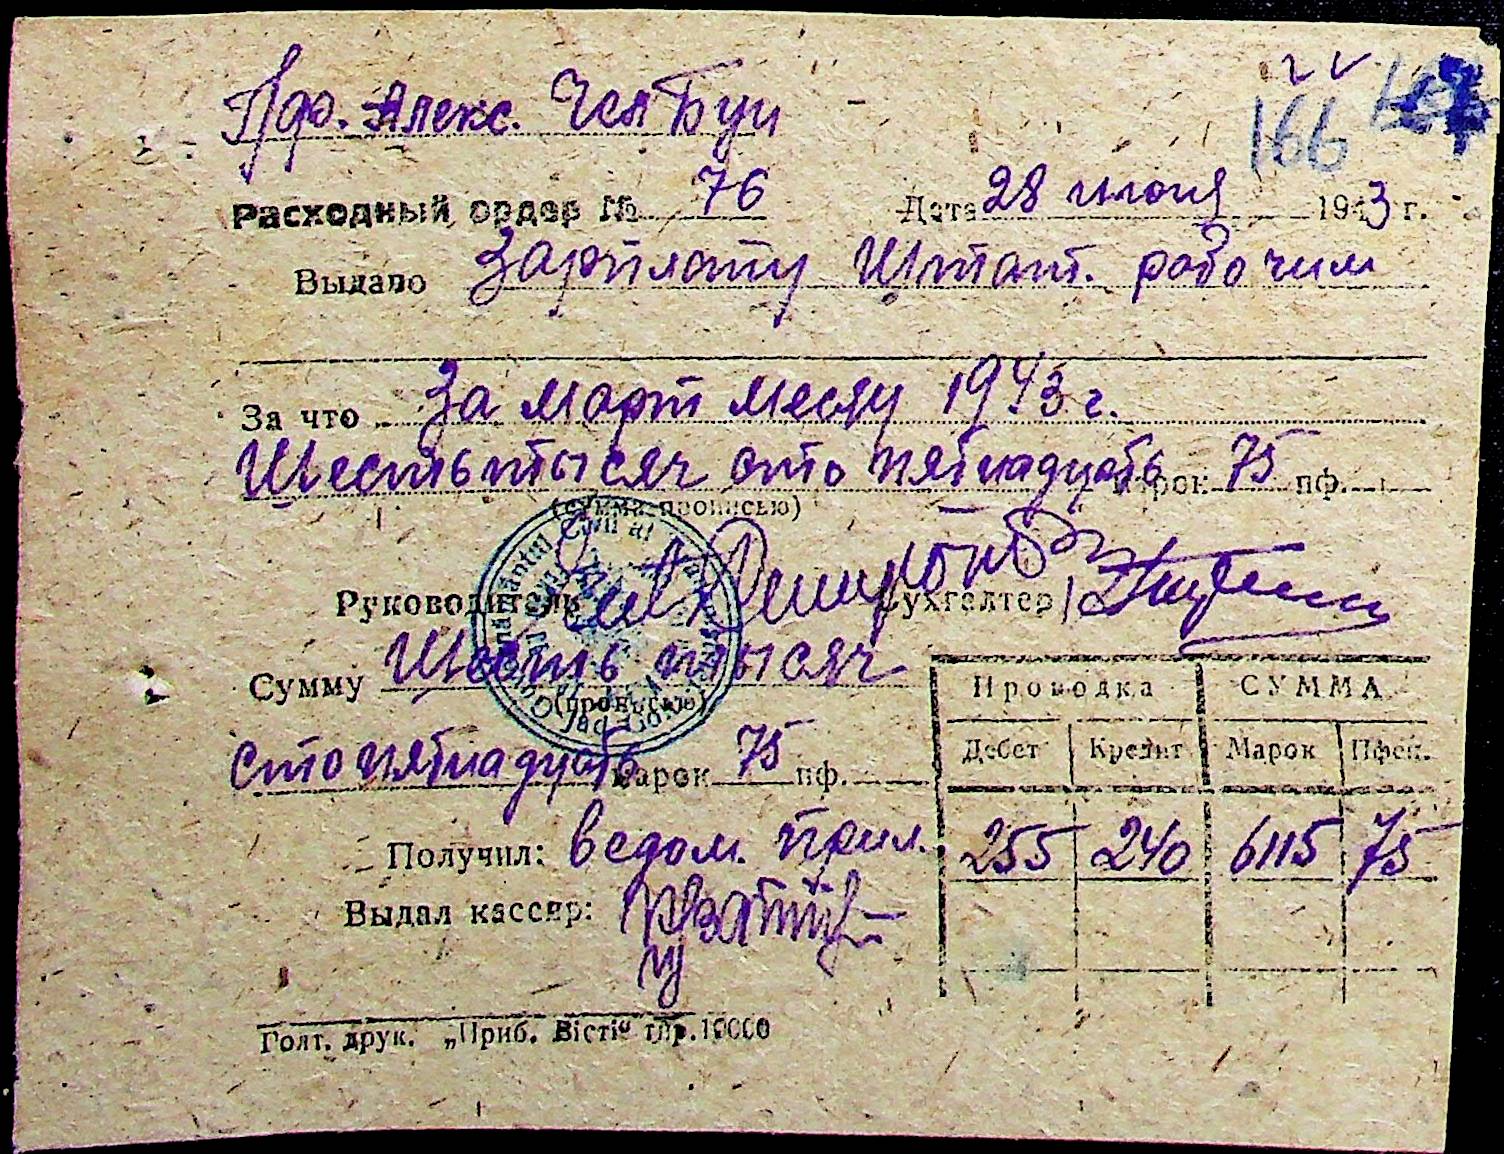 166
Алекс.
Расходный ордер № 76 Дата 28 июня 1943 г.
Выдано Зарплату Штат. рабочим
За что За март месяц 1943 г.
Шестьтысяч сто пятнадцать марок 75 пф.
(сумма прописью)
Руководитель Бухгалтер
Сумму Шесть тысяч
(прописью)
сто пятнадцать марок 75 пф.
Проводка СУММА
Дебет Кредит Марок Пфен.
255 240 6115 75
Получил: ведом. прил.
Выдал кассир:
Голт. друк. „Приб. Вісті“ тир. 10000